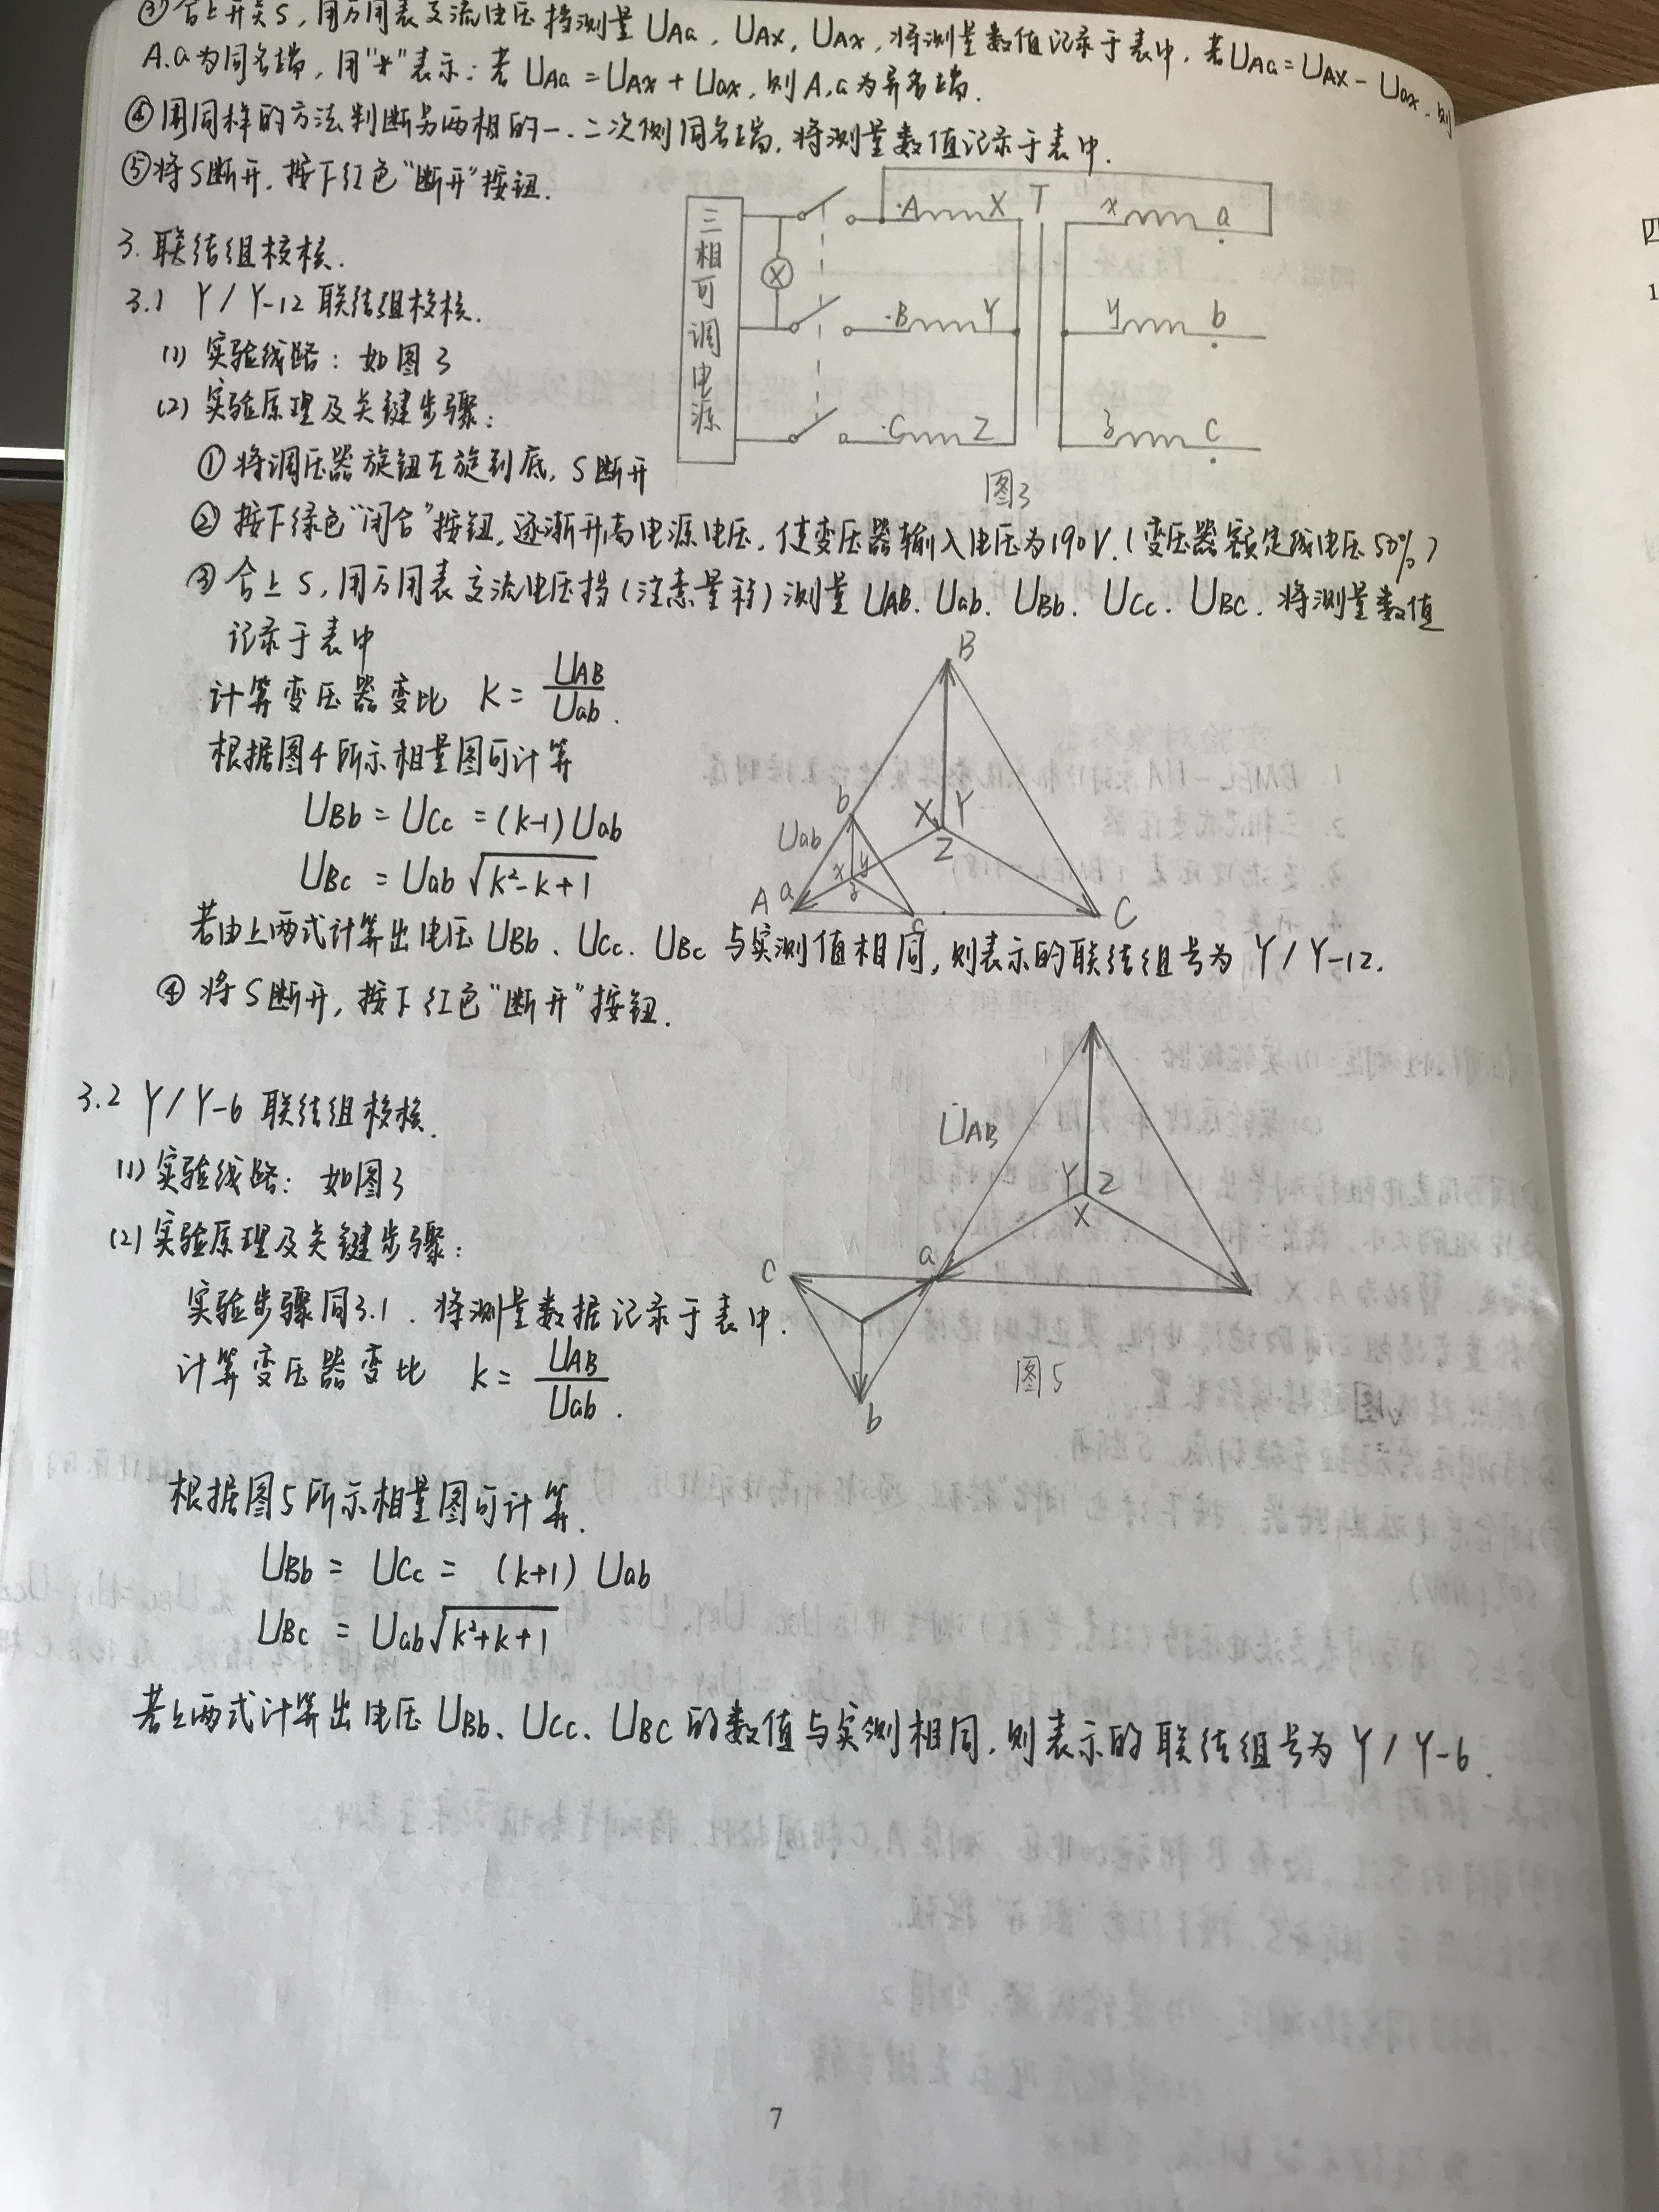 ③合上开关S,用万用表交流电压档测量UAa,UAX,UAX,将测量数值记录于表中,若UAa=UAX-Uax,则
A.a为同名端,用"*"表示;若UAa=UAX+Uax,则A,a为异名端.
④用同样的方法判断另两相的一.二次侧同名端,将测量数值记录于表中.
⑤将S断开,按下红色"断开"按钮.
三相可调电源
·A X T x a
X
·B Y y b
·C Z z c
图3
3.联结组校核.
3.1 Y/Y-12联结组校核.
(1)实验线路:如图3
(2)实验原理及关键步骤:
①将调压器旋钮左旋到底,S断开
②按下绿色"闭合"按钮,逐渐升高电源电压,使变压器输入电压为190V.(变压器额定线电压50%)
③合上S,用万用表交流电压挡(注意量程)测量UAB.Uab.UBb.UCc.UBC.将测量数值
记录于表中
计算变压器变比 K=UAB/Uab.
根据图4所示相量图可计算
UBb=UCc=(k-1)Uab
UBc=Uab√k²-k+1
B
b X Y
Uab Z
x y
z
A a c C
若由上两式计算出电压UBb、UCc、UBc与实测值相同,则表示的联结组号为Y/Y-12.
④将S断开,按下红色"断开"按钮.
3.2 Y/Y-6联结组校核.
(1)实验线路:如图3
(2)实验原理及关键步骤:
实验步骤同3.1.将测量数据记录于表中.
计算变压器变比 k=UAB/Uab.
U̇AB
Y Z
X
c a
b
图5
根据图5所示相量图可计算.
UBb=UCc=(k+1)Uab
UBc=Uab√k²+k+1
若上两式计算出电压UBb、UCc、UBC的数值与实测相同,则表示的联结组号为Y/Y-6.
7
四
1